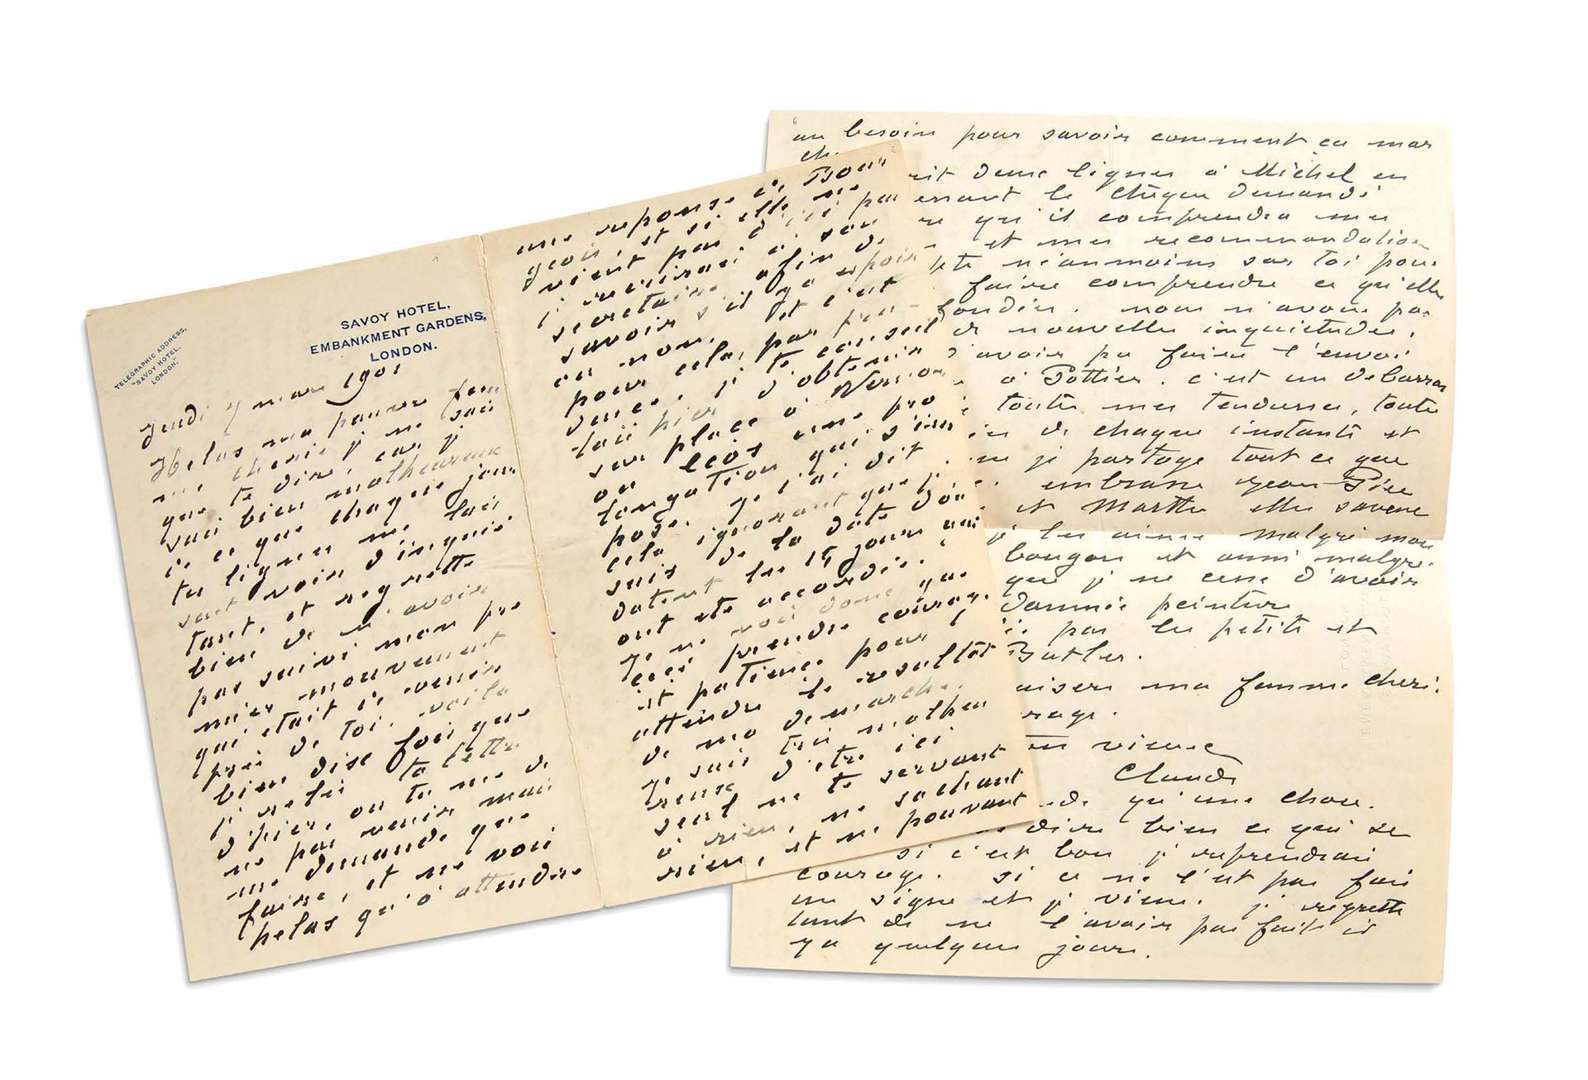 SAVOY HOTEL,
EMBANKMENT GARDENS,
LONDON.
TELEGRAPHIC ADDRESS,
"SAVOY HOTEL,
LONDON."
Jeudi 7 mars 1901
Helas ma pauvre fem
me cherie je ne sais
que te dire, car je
suis bien malheureux
de ce que chaque jour
tes lignes me lais
sent voir d'inquié
tant, et regrette
bien de n'avoir
pas suivi mon pre
mier mouvement
qui était de venir
près de toi. voila
bien dix fois que
je relis ta lettre
d'hier, ou tu me dis
ne pas venir mais
me demande que
faire, et ne vois
helas qu'à attendre
une reponse de Bour
geois et si elle ne
vient pas d'ici peu
j'ecrirai à son
secretaire afin de
savoir s'il y a espoir
ou non. Et c'est
pour cela, par pru
dence, je te conseil
lais hier d'obtenir
sur place à Vernon
ou une pro
longation qui s'im
pose. Je t'ai dit
cela ignorant que je
suis de la date d'où
datent les 15 jours qui
ont été accordés.
Je ne vois donc que
ceci prendre courage
et patience pour
attendre le resultat
de ma demarche.
Je suis très malheu
reux d'être ici
seul ne te servant
à rien, ne sachant
rien, et ne pouvant
au besoin pour savoir comment ca mar
che.
deux lignes à Michel en
le chèque demandé
qu'il comprendra mes
et mes recommandations
néanmoins sur toi pour
faire comprendre ce qu'elle
nous n'avons pas
nouvelles inquietudes.
d'avoir pu faire l'envoi
à Pottier. c'est un debarras
toutes mes tendresses, toute
de chaque instants et
je partage tout ce que
embrasse Jean-Pierre
et Marthe elles savent
je les aime malgré mon
bougon et aussi malgré
que je ne cesse d'avoir
damnée peinture
par les petits et
Butler.
ma femme cherie.
ton vieux
Claude
qu'une chose.
dire bien ce qui se
si c'est bon je reprendrai
courage. Si ce ne l'est pas fais
un signe et je viens. je regrette
tant de ne l'avoir pas fait il
y a quelques jours.